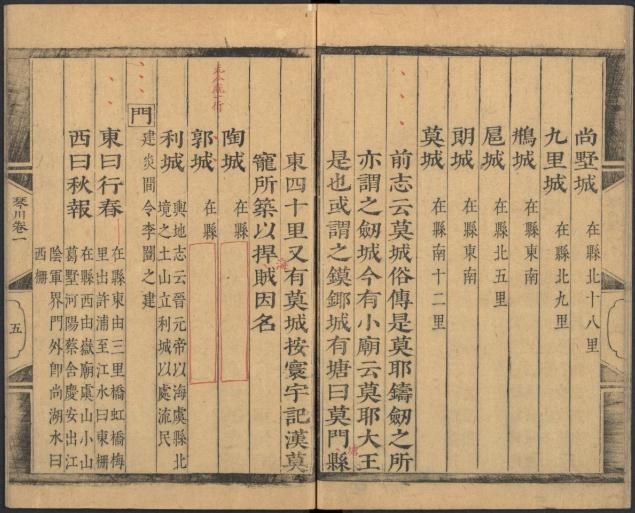 尚墅城 在縣北十八里
九里城 在縣北九里
鴘城 在縣東南
扈城 在縣北五里
朗城 在縣東南
莫城 在縣南十二里
前志云莫城俗傳是莫耶鑄劒之所
亦謂之劒城今有小廟云莫耶大王
是也或謂之鏌鋣城有塘曰莫門縣
東四十里又有莫城按寰宇記漢莫
寵所築以捍賊因名
陶城 在縣
郭城 在縣
利城 輿地志云晉元帝以海虞縣北
境之土山立利城以處流民
門
建炎間令李闓之建
東曰行春 在縣東由三里橋虹橋梅
里出許浦至江水曰東柵
西曰秋報 在縣西由嶽廟虞山小山
葛墅河陽蔡舍慶安出江
陰軍界門外卽尚湖水曰
西柵
琴川卷一
五